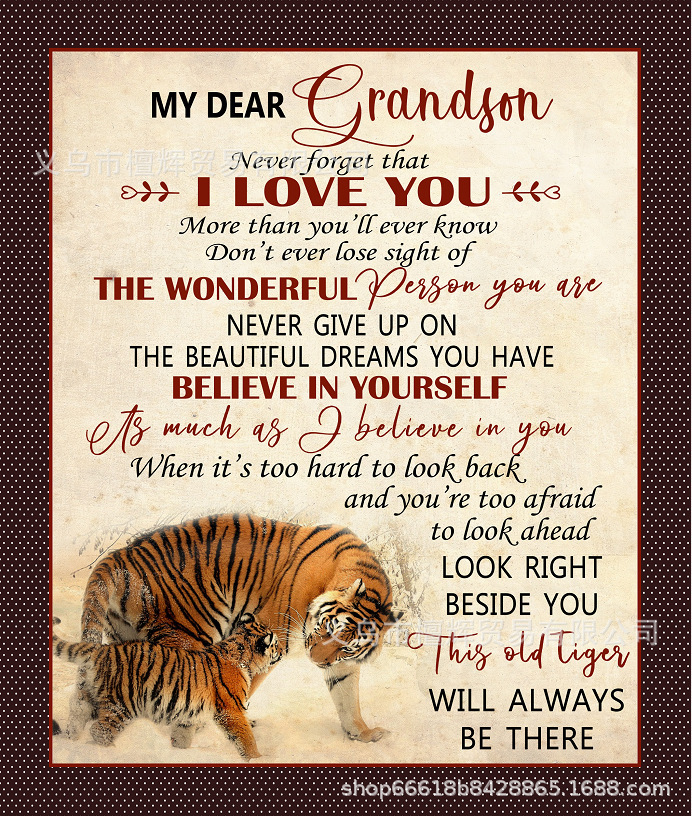 MY DEAR Grandson
Never forget that
I LOVE YOU
More than you'll ever know
Don't ever lose sight of
THE WONDERFUL Person you are
NEVER GIVE UP ON
THE BEAUTIFUL DREAMS YOU HAVE
BELIEVE IN YOURSELF
As much as I believe in you
When it's too hard to look back
and you're too afraid
to look ahead
LOOK RIGHT
BESIDE YOU
义乌市檀辉贸易有限公司
This old tiger
WILL ALWAYS
BE THERE
shop66618b8428865.1688.com